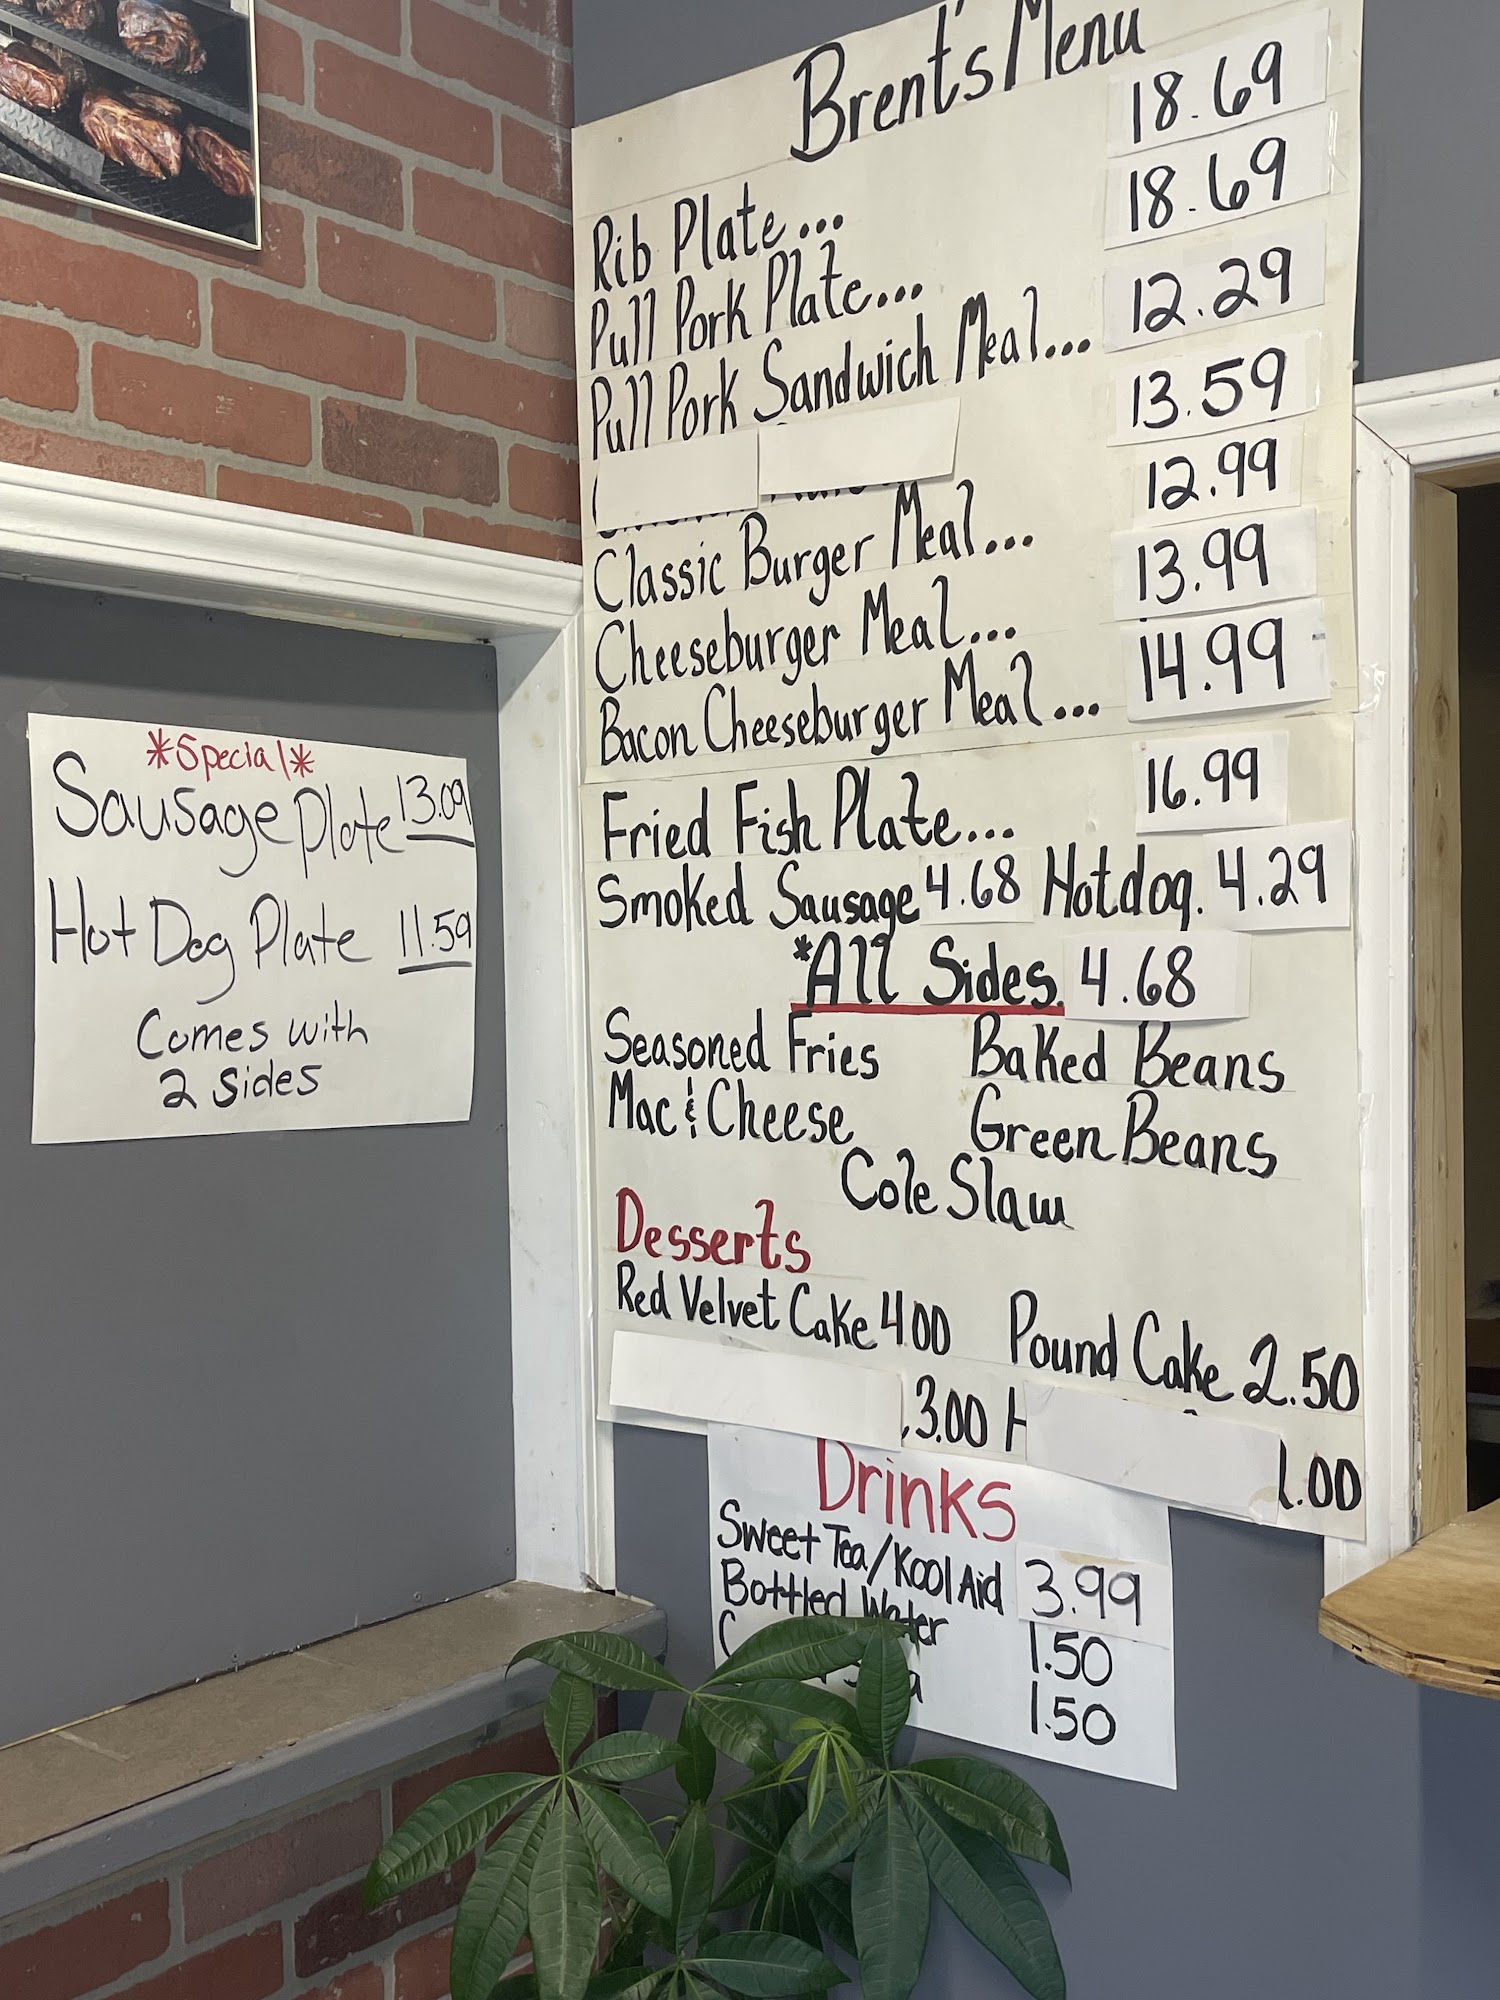 Brent's Menu
Rib Plate... 18.69
Pull Pork Plate... 18.69
Pull Pork Sandwich Meal... 12.29
13.59
Classic Burger Meal... 12.99
Cheeseburger Meal... 13.99
Bacon Cheeseburger Meal... 14.99
Fried Fish Plate... 16.99
Smoked Sausage 4.68 Hotdog. 4.29
*All Sides. 4.68
Seasoned Fries Baked Beans
Mac & Cheese Green Beans
Cole Slaw
Desserts
Red Velvet Cake 4.00 Pound Cake 2.50
3.00 1.00
Drinks
Sweet Tea/Kool Aid 3.99
Bottled Water 1.50
1.50
*Special*
Sausage Plate 13.09
Hot Dog Plate 11.59
Comes with
2 sides